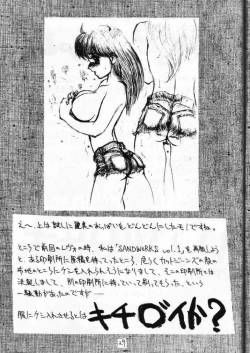 え〜、上は試しに麗美のおっぱいをどんどんにしたモノですね。
ところで前回のレヴォの時、私は「SANDWORKS vol.1」を再版しようと
ある印刷所に原稿を持っていったところ、危うくカットジーンズの股の
布地のところにケシを入れられそうになりまして、そこの印刷所には
決裂しまして、別の印刷所に持っていって刷ってもらった、という
一騒動があったのですが
服にケシ入れさせるとは キチ○イか?